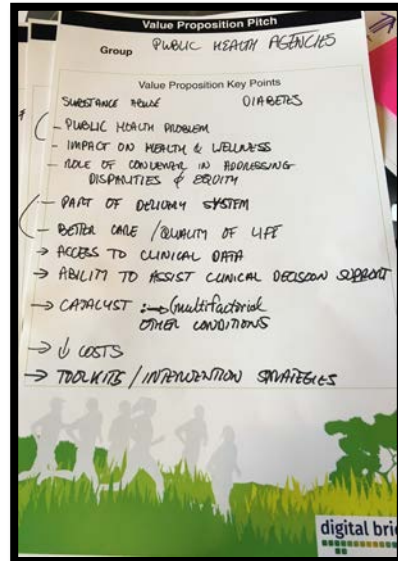 Value Proposition Pitch
Group PUBLIC HEALTH AGENCIES
Value Proposition Key Points
SUBSTANCE ABUSE DIABETES
- PUBLIC HEALTH PROBLEM
- IMPACT ON HEALTH & WELLNESS
- ROLE OF CONVENER IN ADDRESSING
DISPARITIES & EQUITY
- PART OF DELIVERY SYSTEM
- BETTER CARE / QUALITY OF LIFE
→ ACCESS TO CLINICAL DATA
→ ABILITY TO ASSIST CLINICAL DECISION SUPPORT
→ CATALYST :→ (multifactorial
OTHER CONDITIONS
→ ↓ COSTS
→ TOOLKITS / INTERVENTION STRATEGIES
digital bri